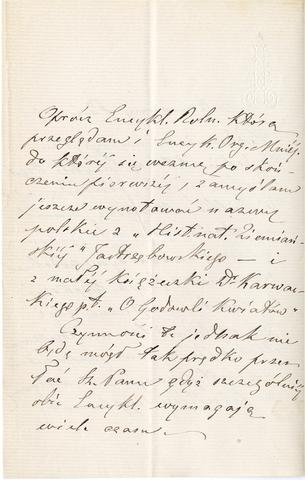 Oprócz Encykl. Roln. którą
przeglądam i Encyk. Org. Mniej.
do której się wezmę po skoń-
czeniu pierwszej, zamyślam
jeszcze wynotować nazwy
polskie z „Hist. nat. Ziemiań-
skiej" Jastrzębowskiego — i
z małej książeczki Dr Karwac-
kiego pt. „O Hodowli Kwiatów"
Czynności te jednak nie
będę mógł tak prędko przes-
łać Sz. Panu gdyż szczególniej
obie Encykl. wymagają
wiele czasu.